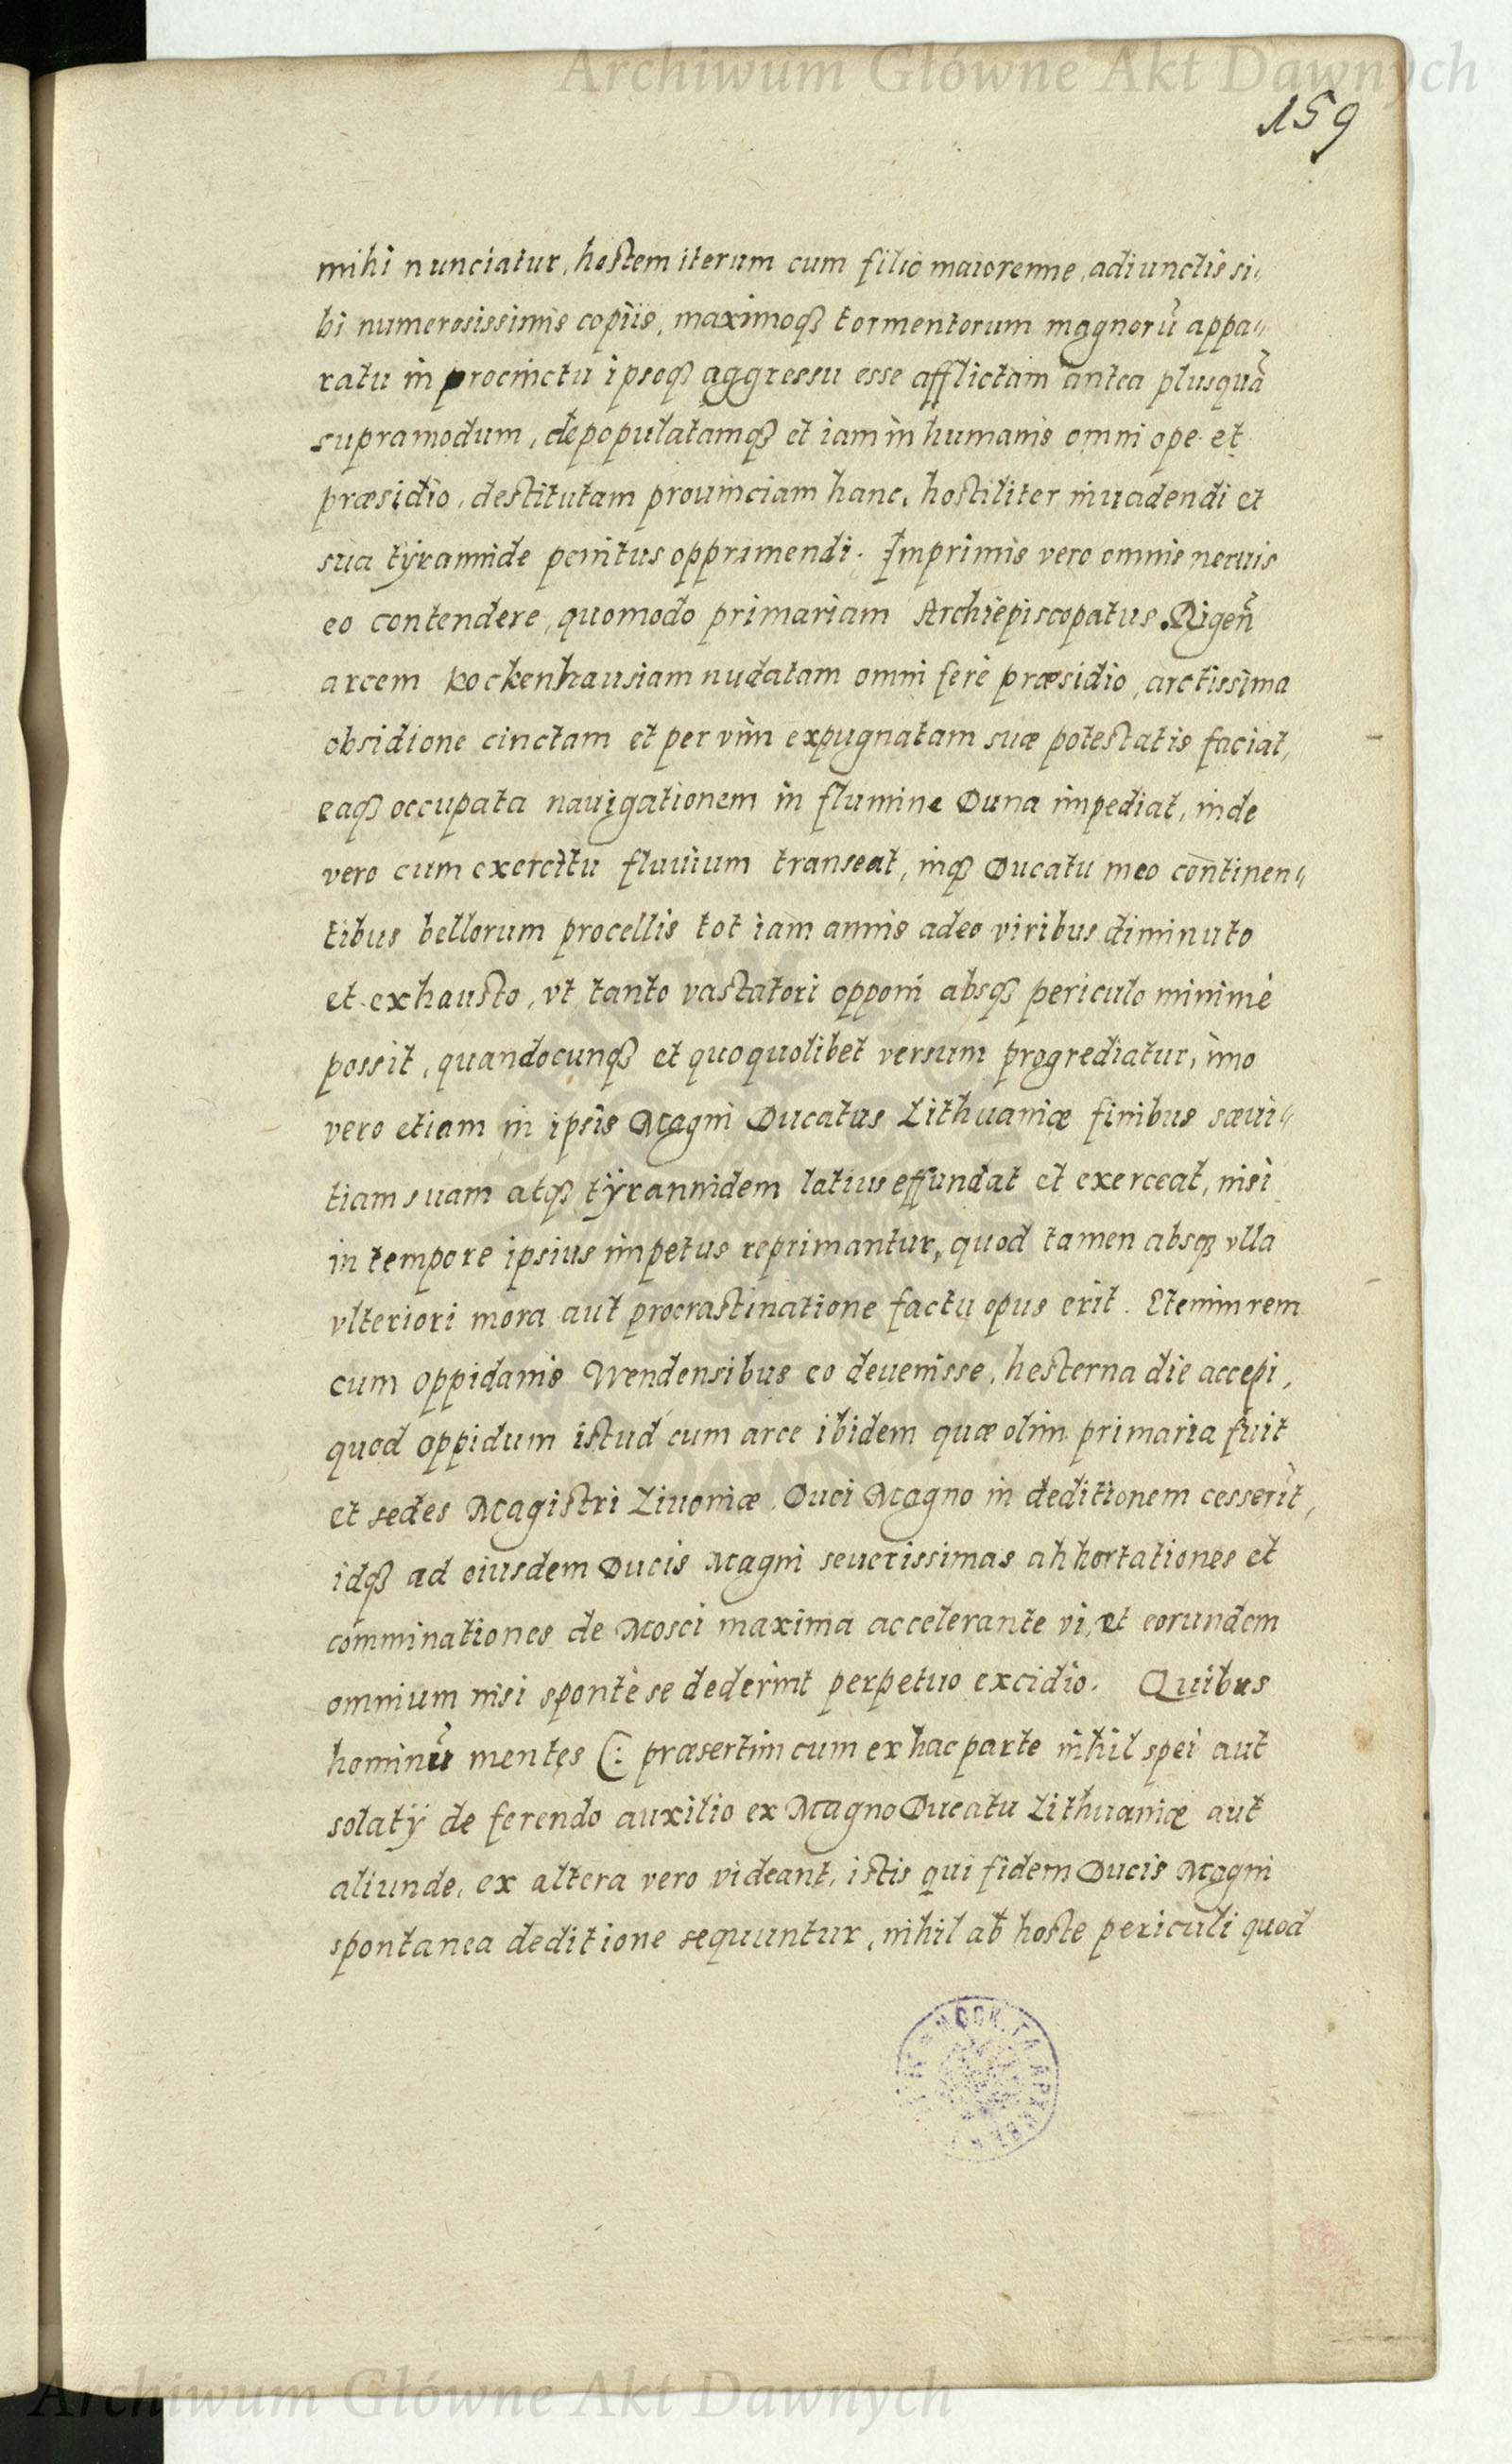 Archiwum Główne Akt Dawnych
159
mihi nunciatur, hostem iterum cum filio maiorenne, adiunctis si„
bi numerosissimis copijs, maximoqꝫ tormentorum magnorũ appa„
ratu in procinctu ipsoqꝫ aggressu esse afflictam antea plusquã
supramodum, depopulatamqꝫ et iam in humanis omni ope et
præsidio, destitutam prouinciam hanc, hostiliter inuadendi et
sua tÿrannide penitus opprimendi. Imprimis vero omnis neruis
eo contendere, quomodo primariam Archiepiscopatus Rigeñ
arcem Kockenhausiam nudatam omni ferè præsidio, arctissima
obsidione cinctam et per vim expugnatam suæ potestatis faciat,
eaqꝫ occupata nauigationem in flumine Duna impediat, inde
vero cum exercitu fluuium transeat, inqꝫ Ducatu meo continen„
tibus bellorum procellis tot iam annis adeo viribus diminuto
et exhausto, vt tanto vastatori opponi absqꝫ periculo minimè
possit, quandocunqꝫ et quoquolibet versum progrediatur, imo
vero etiam in ipsis Magni Ducatus Lithuaniæ finibus sæui„
tiam suam atqꝫ tÿrannidem latius effundat et exerceat, nisi
in tempore ipsius impetus reprimantur, quod tamen absqꝫ vlla
vlteriori mora aut procrastinatione factu opus erit. Etenim rem
cum oppidanis Wendensibus eo deuenisse, hesterna die accepi,
quod oppidum istud cum arce ibidem quæ olim primaria fuit
et sedes Magistri Liuoniæ, Duci Magno in deditionem cesserit,
idqꝫ ad eiusdem Ducis Magni seuerissimas ahhortationes et
comminationes de Mosci maxima accelerante vi, et eorundem
omnium nisi spontè se dederint perpetuo excidio. Quibus
hominũ mentes (: præsertim cum ex hac parte nihil spei aut
solatÿ de ferendo auxilio ex Magno Ducatu Lithuaniæ aut
aliunde, ex altera vero videant, istis qui fidem Ducis Magni
spontanea deditione sequuntur, nihil ab hoste periculi quod
Archiwum Główne Akt Dawnych